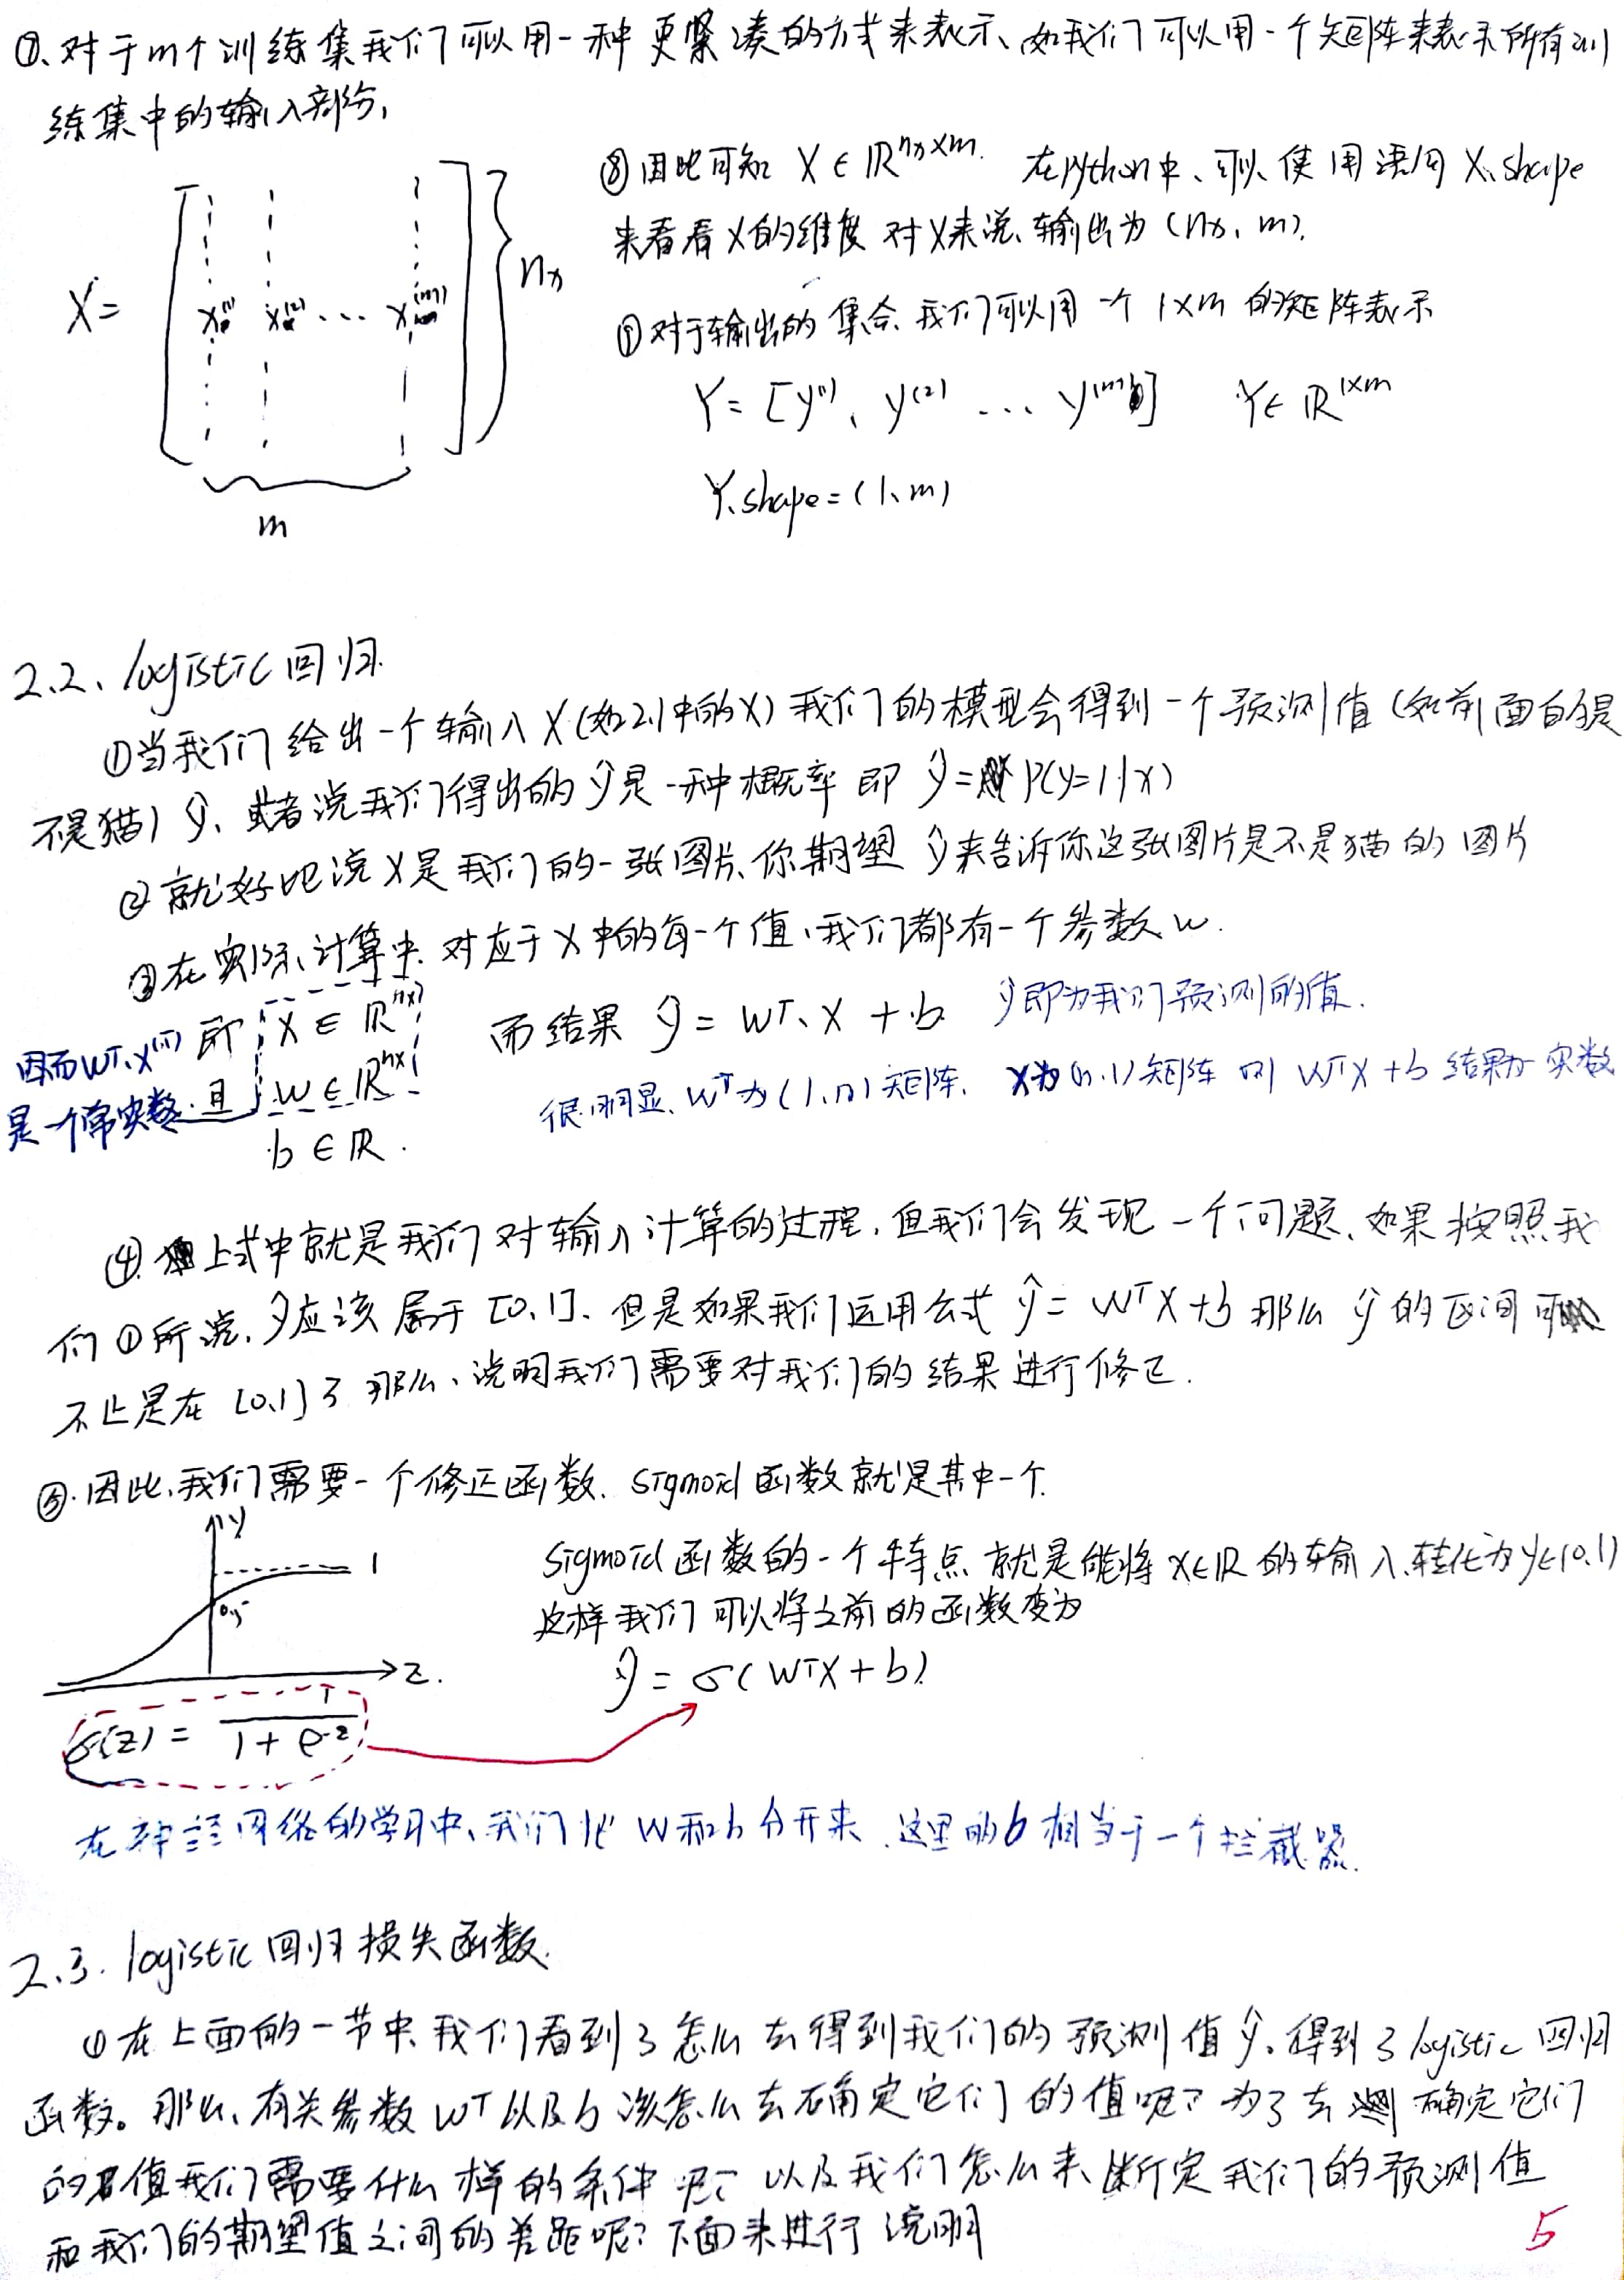 ⑦、对于m个训练集我们可以用一种更紧凑的方式来表示、如我们可以用一个矩阵来表示所有训
练集中的输入部分,
X = [x⁽¹⁾ x⁽²⁾ ... x⁽ᵐ⁾] nx
m
⑧因此可知 X ∈ ℝ^(nx×m). 在python中、可以使用语句 X.shape
来看看X的维度 对X来说、输出为 (nx, m).
⑨对于输出的集合、我们可以用一个 1×m 的矩阵表示
Y = [y⁽¹⁾、y⁽²⁾ ... y⁽ᵐ⁾] Y ∈ ℝ^(1×m)
Y.shape = (1、m)
2.2、logistic回归.
①当我们给出一个输入X(如2.1中的X)我们的模型会得到一个预测值(如前面的是
不是猫) ŷ、或者说我们得出的ŷ是一种概率 即 ŷ = P(y=1|x)
②就好比说X是我们的一张图片、你期望 ŷ来告诉你这张图片是不是猫的图片
③在实际计算中、对应于X中的每一个值、我们都有一个参数w.
即 X ∈ ℝ^(nx) 而结果 ŷ = wᵀ、X + b ŷ即为我们预测的值.
因而wᵀ、x⁽ⁱ⁾
是一个常实数. 且 w ∈ ℝ^(nx) 很明显、wᵀ为(1,n)矩阵. X为(n,1)矩阵 则 wᵀX + b 结果为实数
b ∈ ℝ.
④.上式中就是我们对输入计算的过程.但我们会发现一个问题、如果按照我
们①所说.ŷ应该属于[0,1]、但是如果我们运用公式 ŷ = wᵀX + b 那么 ŷ的区间可
不止是在[0,1]了 那么、说明我们需要对我们的结果进行修正.
⑤.因此,我们需要一个修正函数. sigmoid函数就是其中一个.
y 1 0.5 z.
sigmoid函数的一个特点就是能将x∈ℝ的输入、转化为y∈(0,1)
这样我们可以将之前的函数变为
ŷ = σ(wᵀX + b).
σ(z) = 1 / (1 + e^(-z))
在神经网络的学习中、我们把w和b分开来、这里的b相当于一个拦截器.
2.3. logistic回归损失函数.
①在上面的一节中、我们看到了怎么去得到我们的预测值ŷ.得到了logistic回归
函数。那么、有关参数wᵀ以及b该怎么去确定它们的值呢?为了去确定它们
的值我们需要什么样的条件呢? 以及我们怎么来断定我们的预测值
和我们的期望值之间的差距呢?下面来进行说明
5